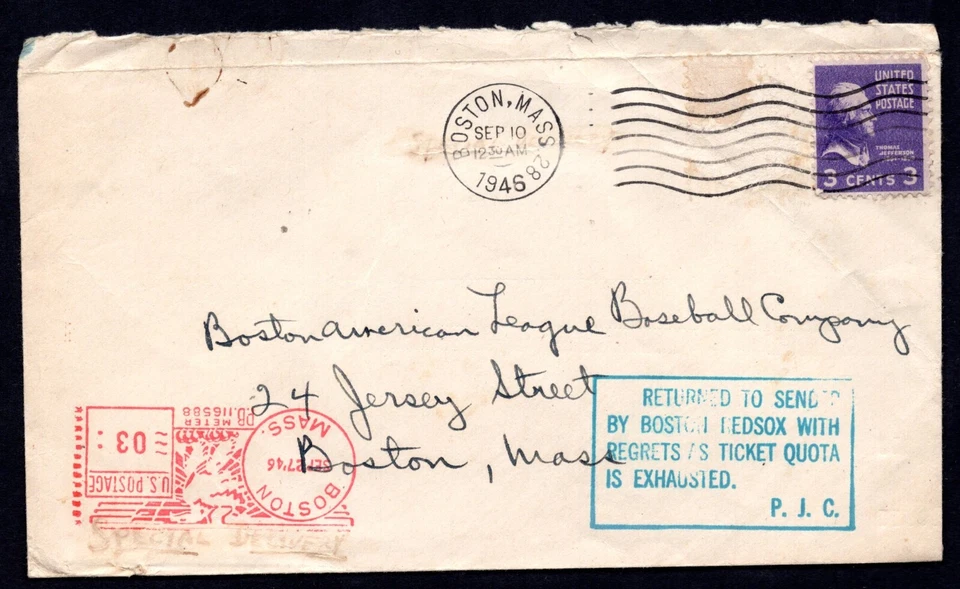 BOSTON, MASS. 28
SEP 10
12 30 AM
1946
UNITED
STATES
POSTAGE
THOMAS
JEFFERSON
3 CENTS 3
Boston American League Baseball Company
24 Jersey Street
Boston, Mass
RETURNED TO SENDER
BY BOSTON REDSOX WITH
REGRETS AS TICKET QUOTA
IS EXHAUSTED.
P. J. C.
U.S. POSTAGE
03
PB METER
116588
BOSTON
SEP 27 '46
MASS.
SPECIAL DELIVERY